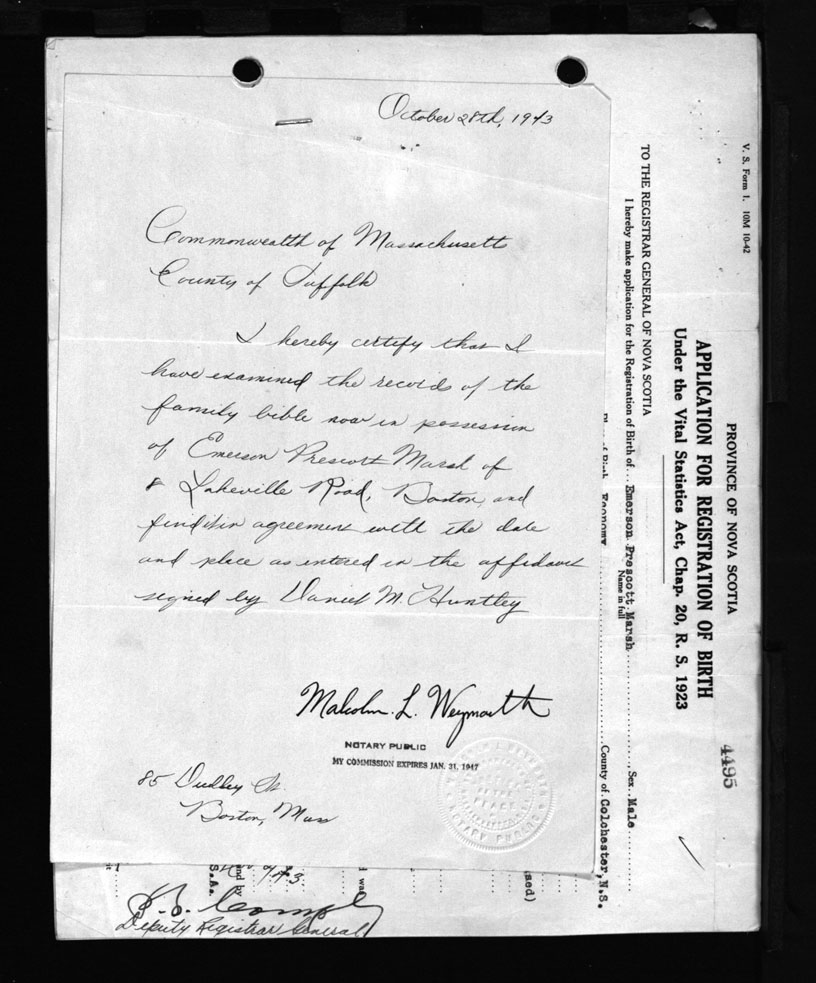 October 28th, 1943
Commonwealth of Massachusetts
County of Suffolk
I hereby certify that I
have examined the records of the
family bible now in possession
of Emerson Prescott Marsh of
8 Lakeville Road, Boston, and
find it in agreement with the date
and place as entered in the affidavit
signed by Daniel M. Huntley
Malcolm L. Weymouth
NOTARY PUBLIC
MY COMMISSION EXPIRES JAN. 31, 1947
85 Dudley St.
Boston, Mass
V. S. Form 1. 10M 10-42
PROVINCE OF NOVA SCOTIA
4495
APPLICATION FOR REGISTRATION OF BIRTH
Under the Vital Statistics Act, Chap. 20, R. S. 1923
TO THE REGISTRAR GENERAL OF NOVA SCOTIA
I hereby make application for the Registration of Birth of Emerson Prescott Marsh Sex Male
Name in full
Economy County of Colchester, N.S.
Deputy Registrar General